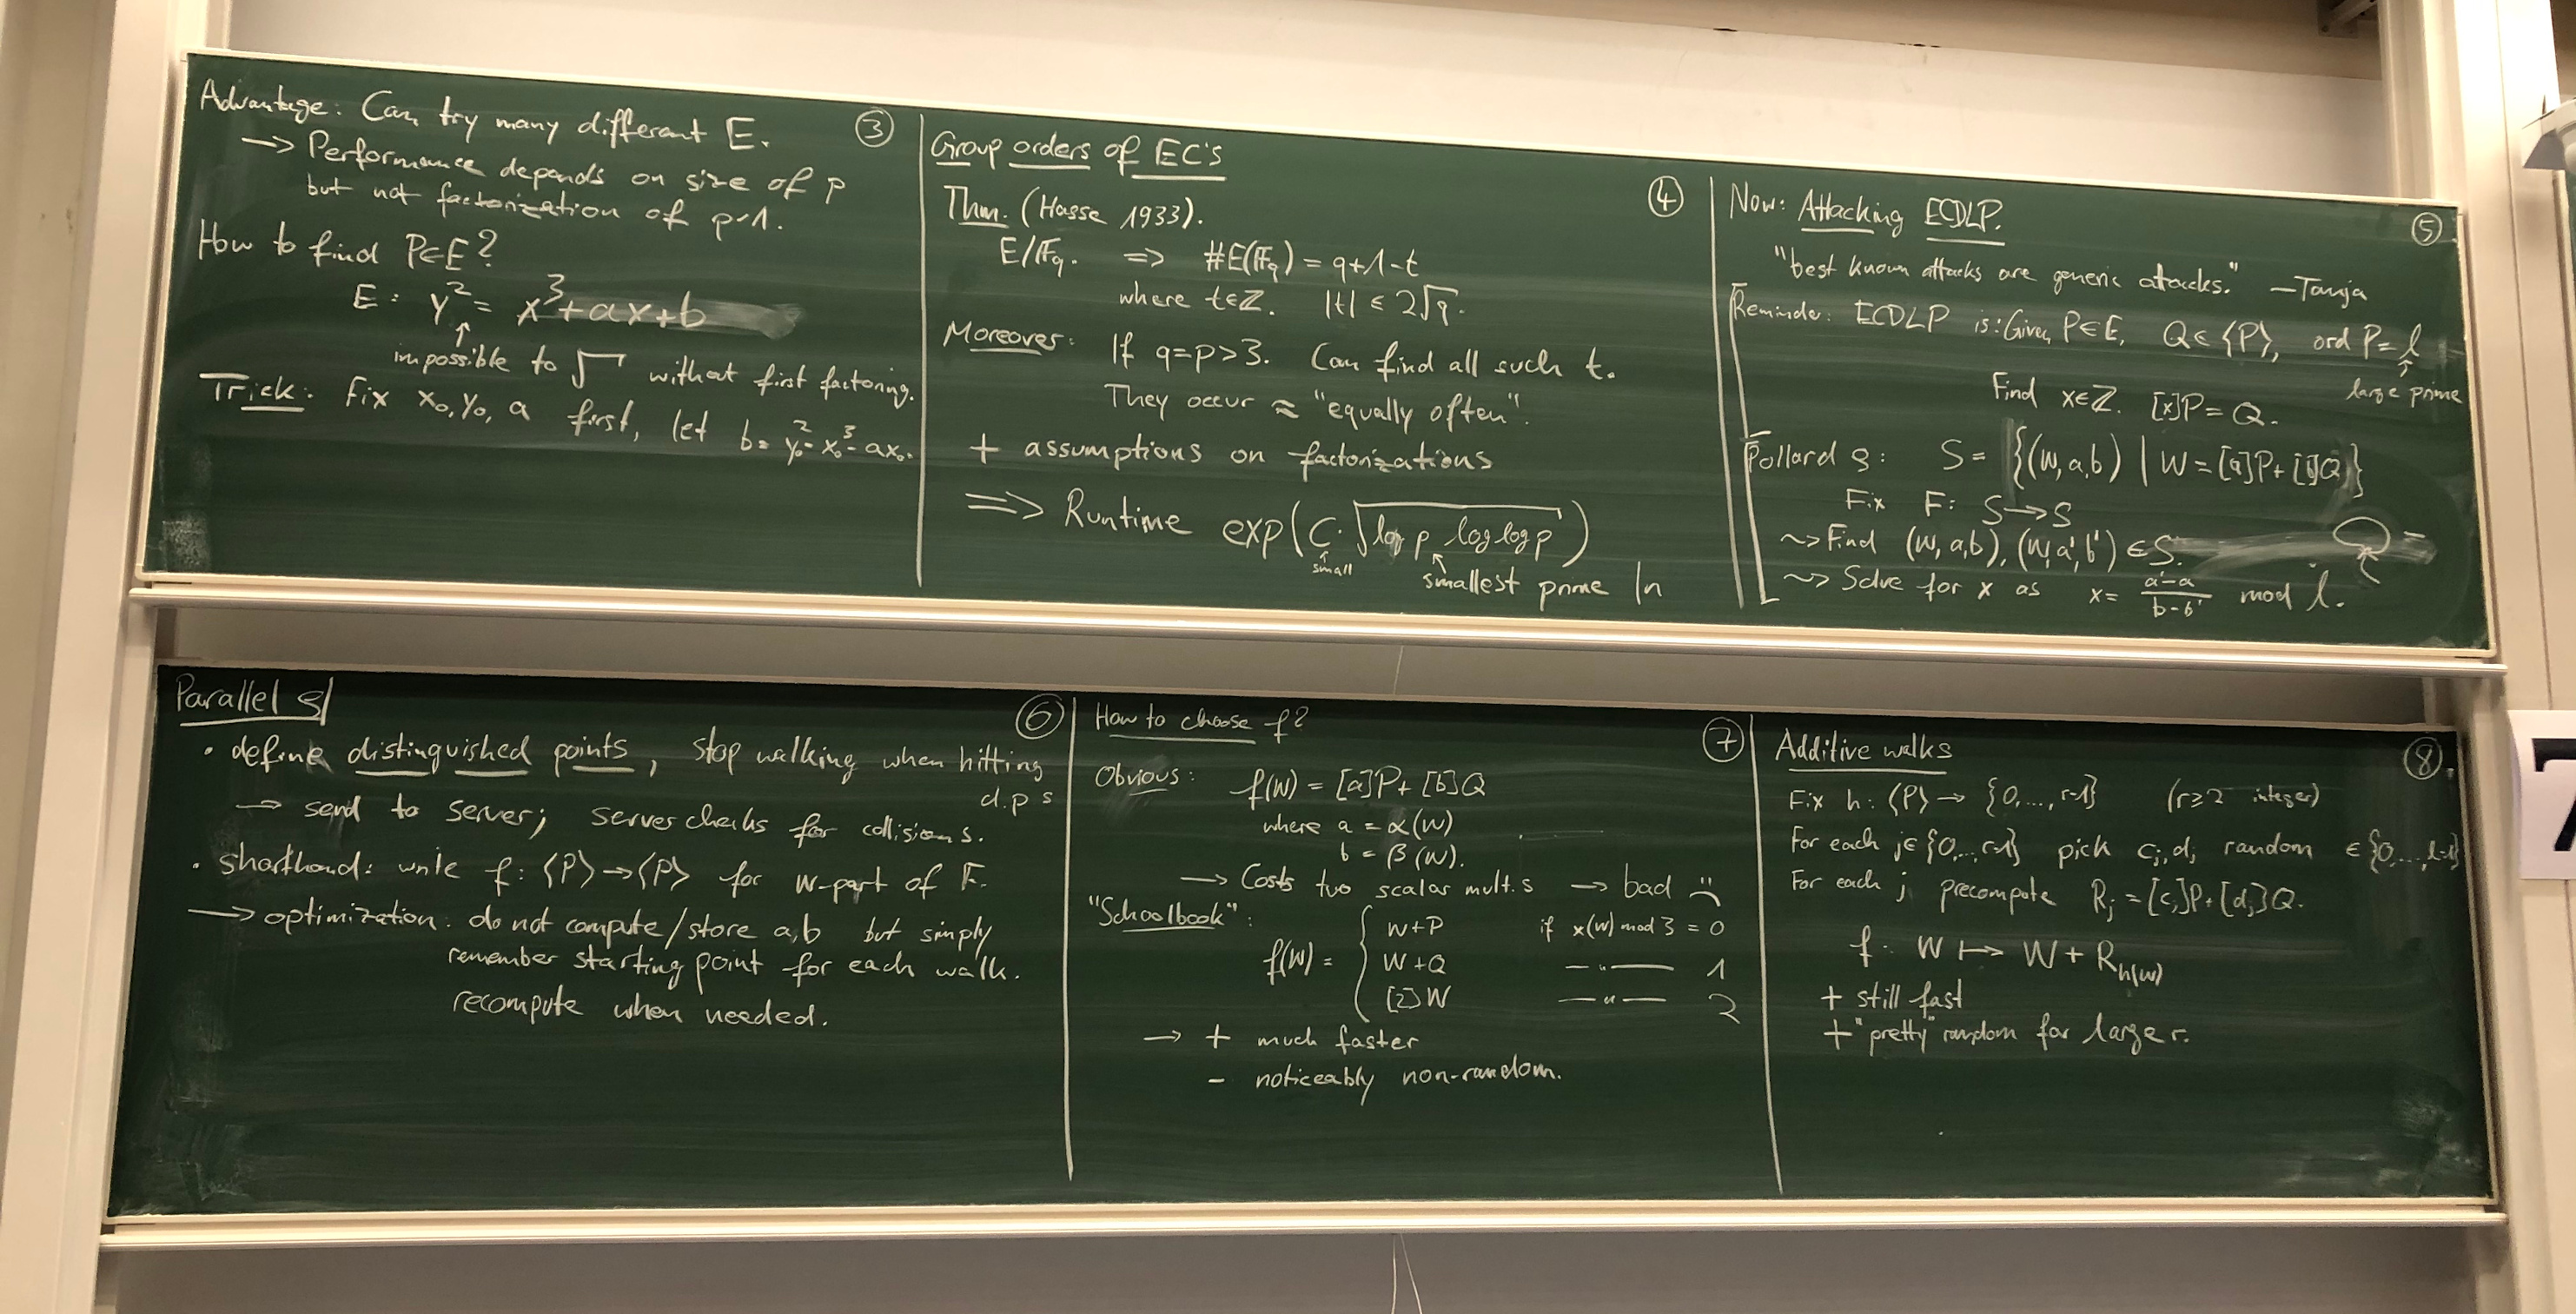 Advantage: Can try many different E. ③
→ Performance depends on size of p
but not factorization of p-1.
How to find P∈E?
E: y² = x³+ax+b
↑
impossible to √ without first factoring.
Trick: Fix x₀, y₀, a first, let b = y₀² - x₀³ - ax₀.
Group orders of EC's
④
Thm. (Hasse 1933).
E/𝔽q. ⟹ #E(𝔽q) = q+1-t
where t∈ℤ. |t| ≤ 2√q.
Moreover: If q=p>3. Can find all such t.
They occur ≈ "equally often".
+ assumptions on factorizations
⟹ Runtime exp(C·√(log p log log p))
small
smallest prime |n
Now: Attacking ECDLP. ⑤
"best known attacks are generic attacks." —Tanja
Reminder: ECDLP is: Given P∈E, Q∈⟨P⟩, ord P = ℓ
large prime
Find x∈ℤ. [x]P = Q.
Pollard ρ: S = {(W,a,b) | W = [a]P + [b]Q}
Fix F: S → S
⇝ Find (W,a,b), (W,a',b') ∈ S.
⇝ Solve for x as x = (a'-a)/(b-b') mod ℓ.
Parallel ρ ⑥
• define distinguished points, stop walking when hitting
d.p's
→ send to server; server checks for collisions.
• shorthand: write f: ⟨P⟩→⟨P⟩ for W-part of F.
→ optimization: do not compute/store a,b but simply
remember starting point for each walk.
recompute when needed.
How to choose f? ⑦
Obvious: f(W) = [a]P + [b]Q
where a = α(W)
b = β(W).
→ Costs two scalar mult.s → bad ☹
"Schoolbook":
f(W) = { W+P if x(W) mod 3 = 0
W+Q —"— 1
[2]W —"— 2
→ + much faster
- noticeably non-random.
Additive walks ⑧
Fix h: ⟨P⟩ → {0,...,r-1} (r≥2 integer)
For each j∈{0,...,r-1} pick cⱼ,dⱼ random ∈{0,...,ℓ-1}
For each j precompute Rⱼ = [cⱼ]P + [dⱼ]Q.
f: W ↦ W + R_h(W)
+ still fast
+ "pretty" random for larger r.
7